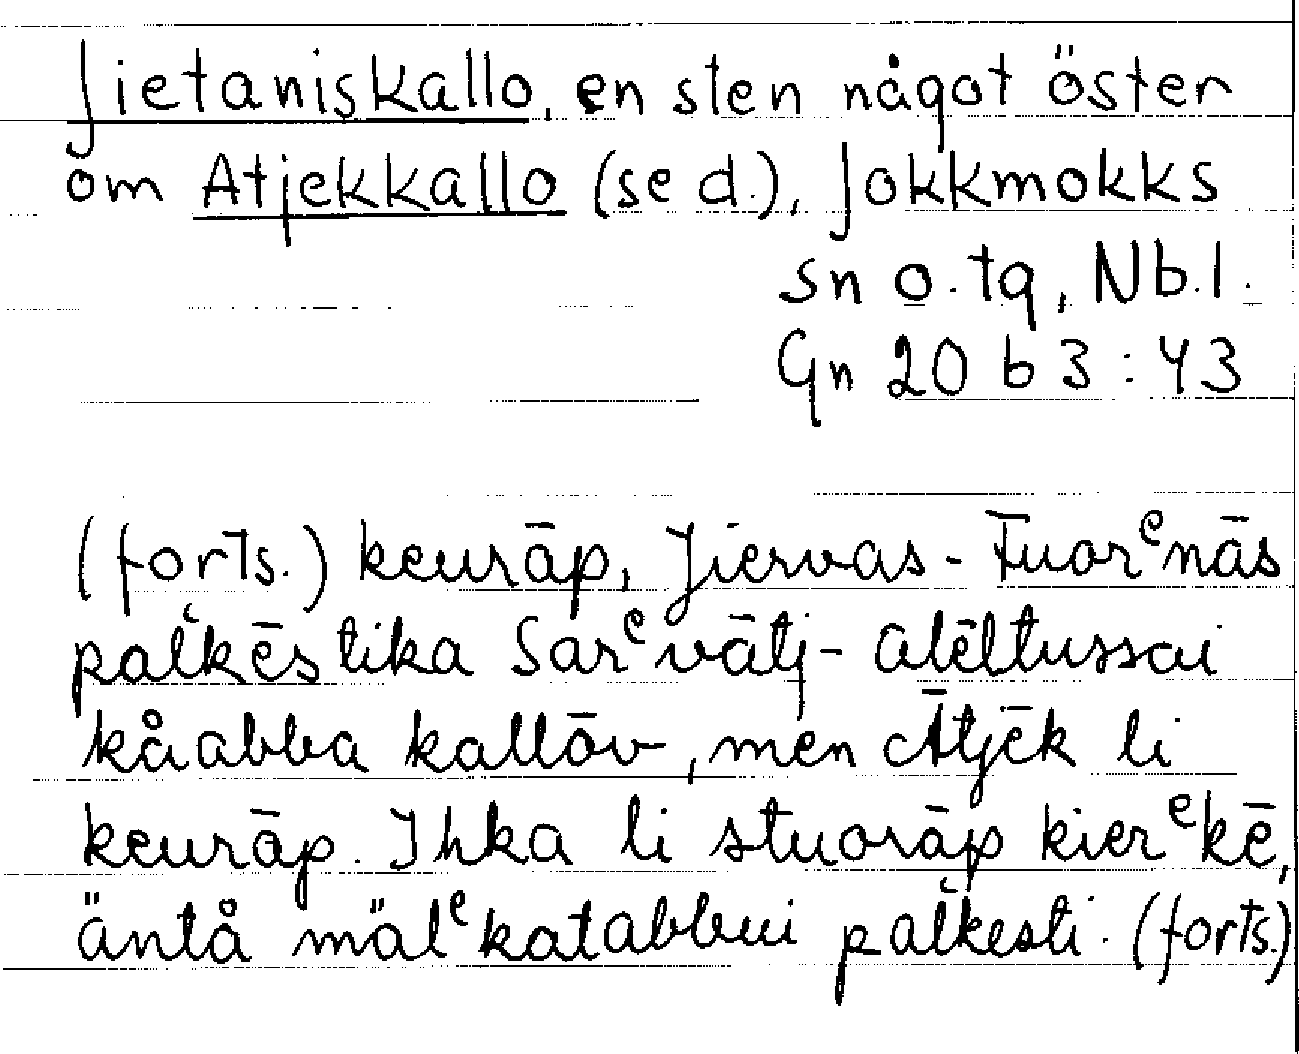 Jietaniskallo, en sten något öster
om Atjekkallo (se d.), Jokkmokks
sn o. tg, Nb. l.
Gn 20 b 3 : 43
(forts.) keurāp, Jiervas - Tuorᵉnās
paľkēs tika Sarᵉvātj - alēltussai
kåabba kallōv, men Ātjēk li
keurāp. Ihka li stuorāp kierᵉkē,
äntå mälᵉkat abbui paľkesti. (forts.)